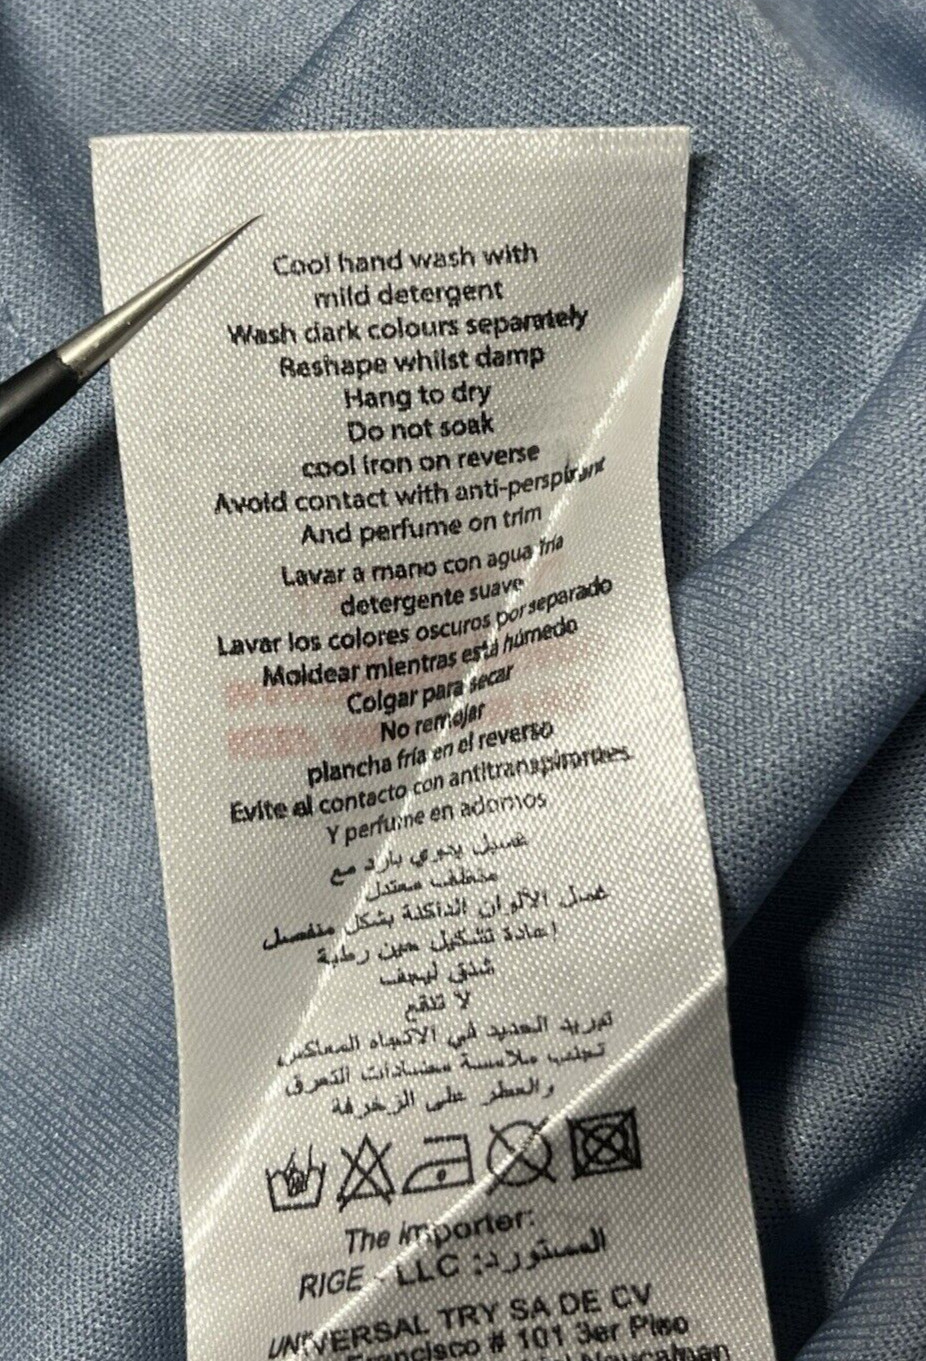 Cool hand wash with
mild detergent
Wash dark colours separately
Reshape whilst damp
Hang to dry
Do not soak
cool iron on reverse
Avoid contact with anti-perspirant
And perfume on trim
Lavar a mano con agua fria
detergente suave
Lavar los colores oscuros por separado
Moldear mientras está húmedo
Colgar para secar
No remojar
plancha fría en el reverso
Evite el contacto con antitranspirantes
Y perfume en adornos
غسيل يدوي بارد مع
منظف معتدل
غسل الألوان الداكنة بشكل منفصل
إعادة تشكيل حين رطبة
شنق ليجف
لا تنقع
تبريد الحديد في الاتجاه المعاكس
تجنب ملامسة مضادات التعرق
والعطر على الزخرفة
The importer:
RIGE - LLC :المستورد
UNIVERSAL TRY SA DE CV
Francisco # 101 3er Piso
Naucalpan